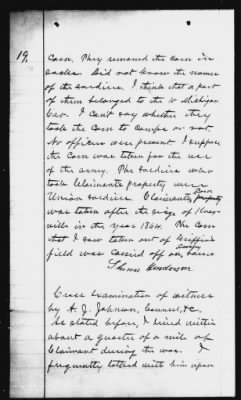 19.
corn. They removed the corn in
sacks. Did not know the names
of the soldiers. I think that a part
of them belonged to the 10 Michigan
Cav. I cant say whether they
took the corn to camps or not.
No officer were present. I suppose
the corn was taken for the use
of the army. The soldiers who
took Claimants property were
Union soldiers. Claimants corn property
was taken after the siege of Knox-
ville in the year 1864. The corn
that I saw taken out of Griffins
field was carried off on
Thomas Anderson
Cross Examination of witness
by A. J. Johnson, Counsel, &c.
As stated before, I lived within
about a quarter of a mile of
Claimant during the war. I
frequently talked with him upon